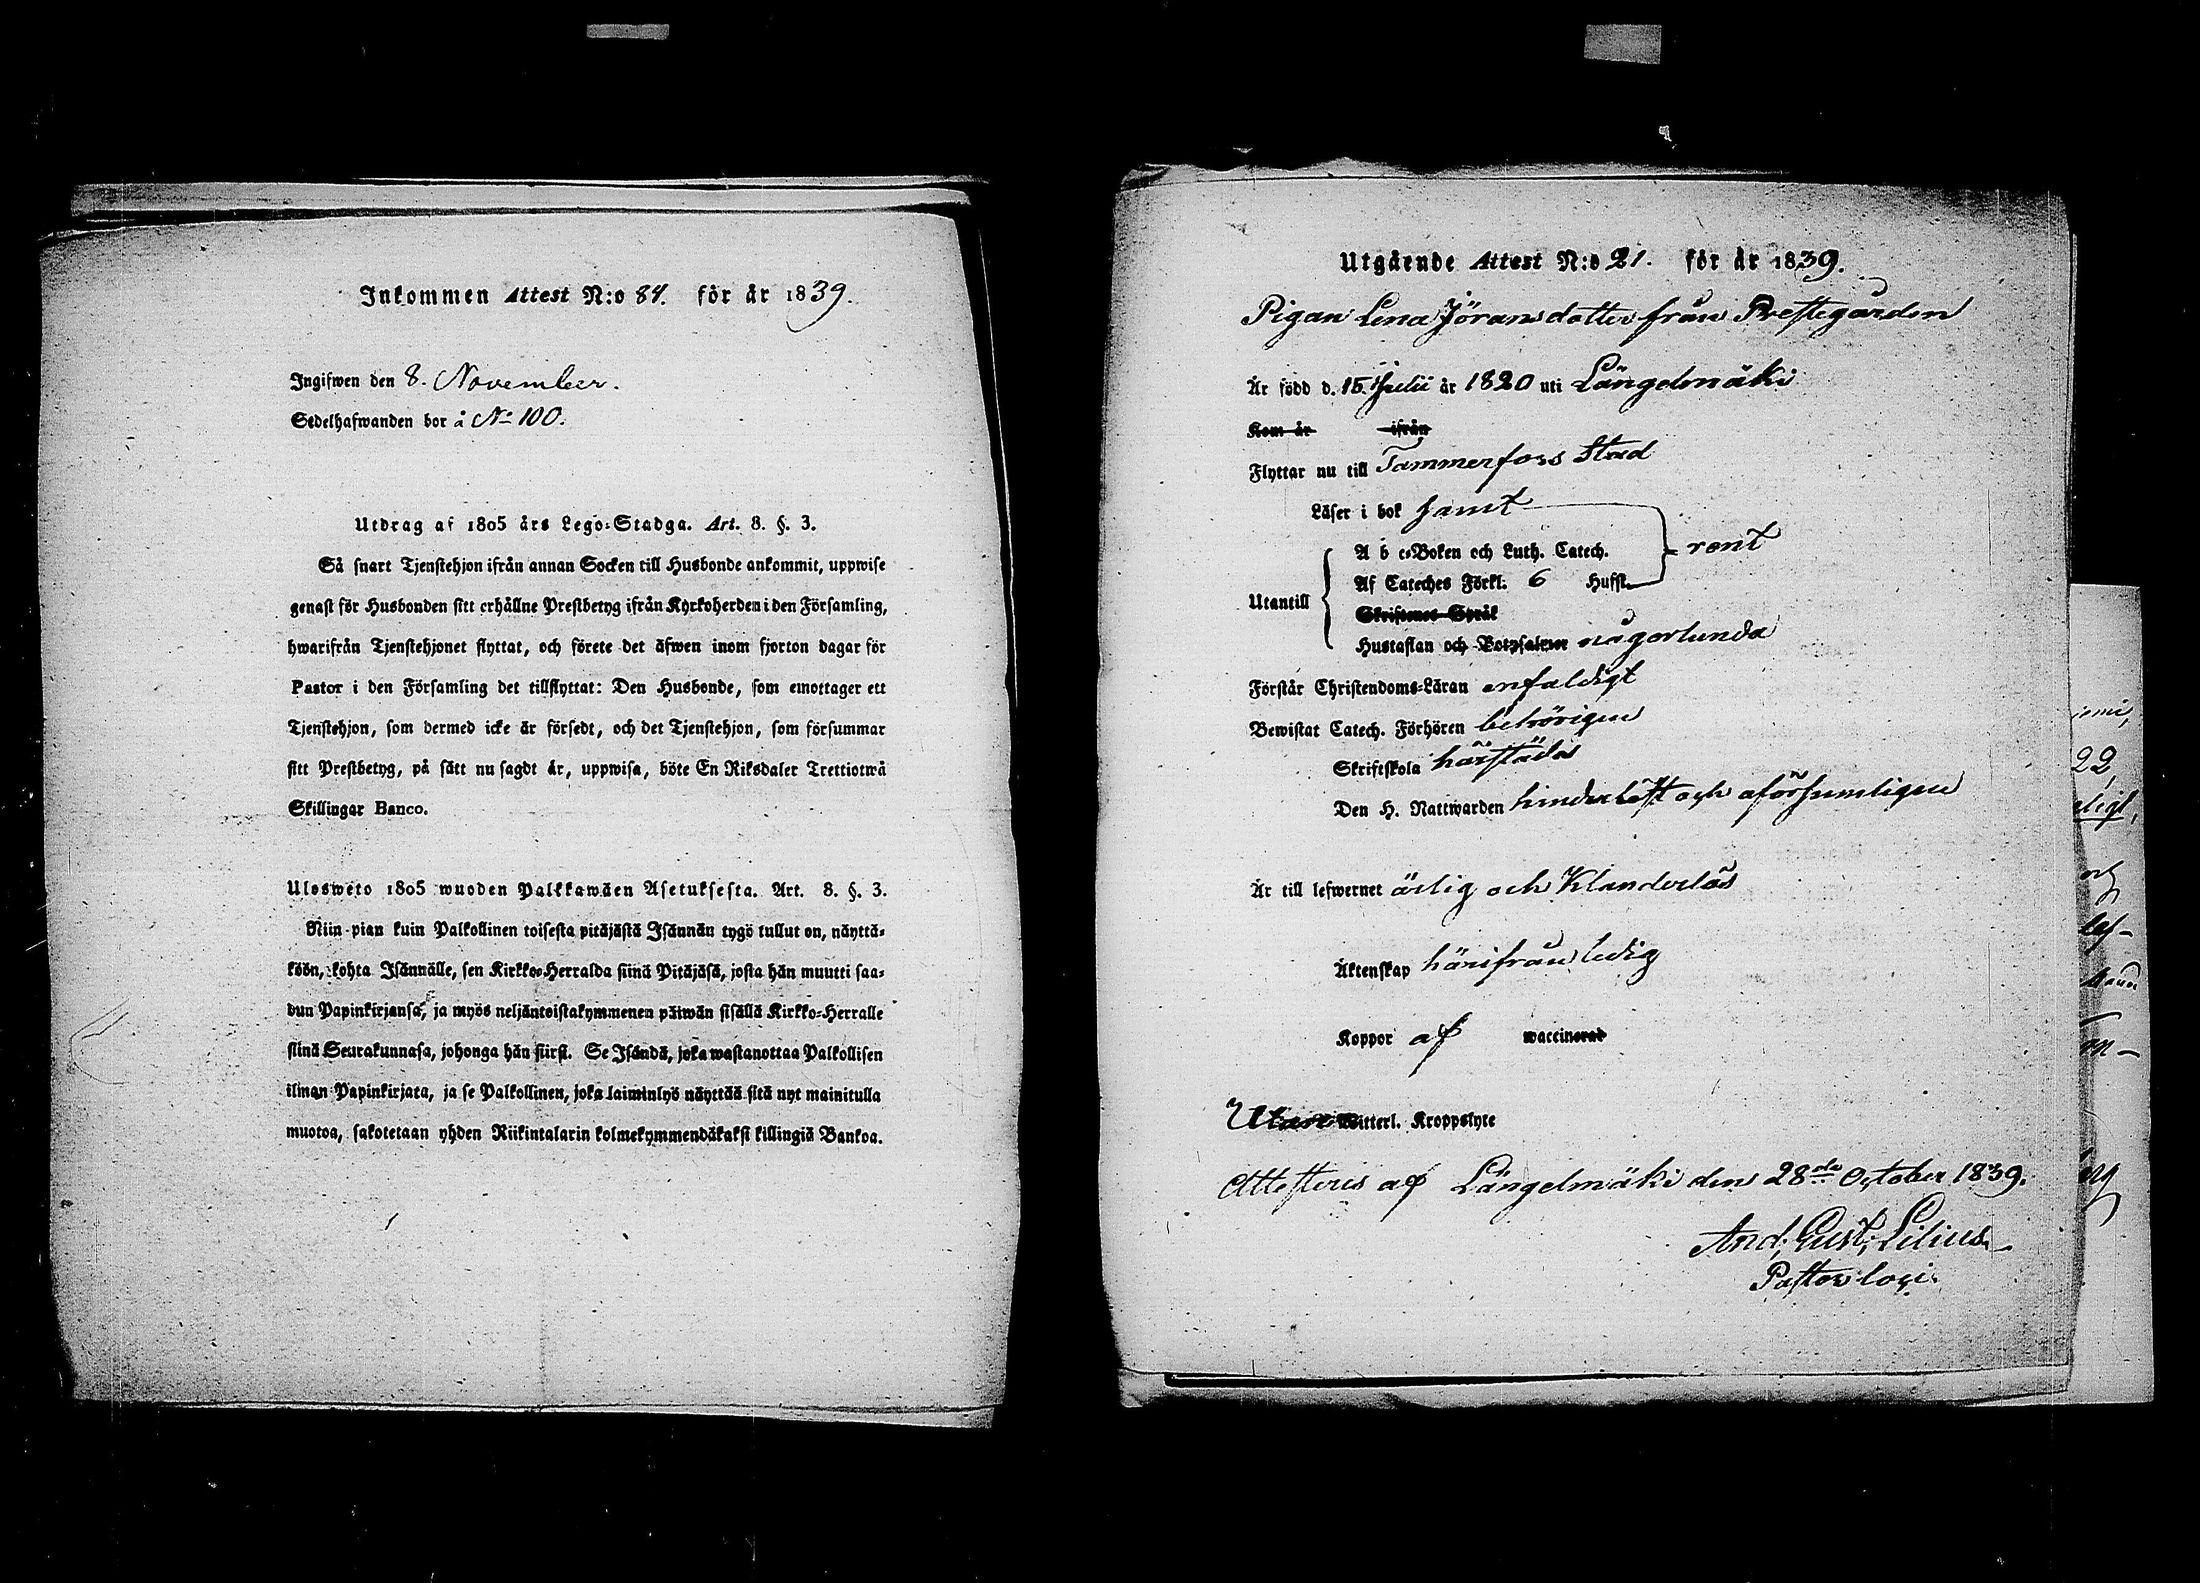 Inkommen Attest N:o 84. för år 1839.
Ingifwen den 8. November.
Sedelhafwanden bor å No 100.
Utdrag af 1805 års Lego-Stadga. Art. 8. §. 3.
Så snart Tjenstehjon ifrån annan Socken till Husbonde ankommit, uppwise
genast för Husbonden sitt erhållne Prestbetyg ifrån Kyrkoherden i den Församling,
hwarifrån Tjenstehjonet flyttat, och förete det äfwen inom fjorton dagar för
Pastor i den Församling det tillflyttat: Den Husbonde, som emottager ett
Tjenstehjon, som dermed icke är försedt, och det Tjenstehjon, som försummar
sitt Prestbetyg, på sätt nu sagdt är, uppwisa, böte En Riksdaler Trettiotwå
Skillingar Banco.
Ulosweto 1805 wuoden Palkkawäen Asetuksesta. Art. 8. §. 3.
Niin pian kuin Palkollinen toisesta pitäjästä Isännän tygö tullut on, näyttä-
köön, kohta Isännälle, sen Kirkko-Herralda siinä Pitäjäsä, josta hän muutti saa-
dun Papinkirjansa, ja myös neljäntoistakymmenen päiwän sisällä Kirkko-Herralle
siinä Seurakunnasa, johonga hän siirsi. Se Isändä, joka wastanottaa Palkollisen
ilman Papinkirjata, ja se Palkollinen, joka laiminlyö näyttää sitä nyt mainitulla
muotoa, sakotetaan yhden Riikintalarin kolmekymmendäkaksi killingiä Bankoa.
Utgående Attest N:o 21. för år 1839.
Pigan Lena Jöransdotter från Prestegården
Är född d. 15. Julii år 1820 uti Längelmäki
Kom år ifrån
Flyttar nu till Tammerfors Stad
Läser i bok samt
A b c-Boken och Luth. Catech. rent
Af Cateches Förkl. 6 Hufst.
Utantill
Skriftenes Språk
Hustaflan och Botpsalmer någorlunda
Förstår Christendoms-Läran enfaldigt
Bewistat Catech. Förhören behörigen
Skriftskola härstädes
Den H. Nattwarden hinderlöst och oförsumligen
Är till lefwernet ärlig och Klanderlös
Äktenskap härifrån ledig
Koppor af waccinerad
Utan Witterl. Kroppslyte
Attesteris af Längelmäki den 28de October 1839.
And. Gust. Lilius
Pastor loci.
22